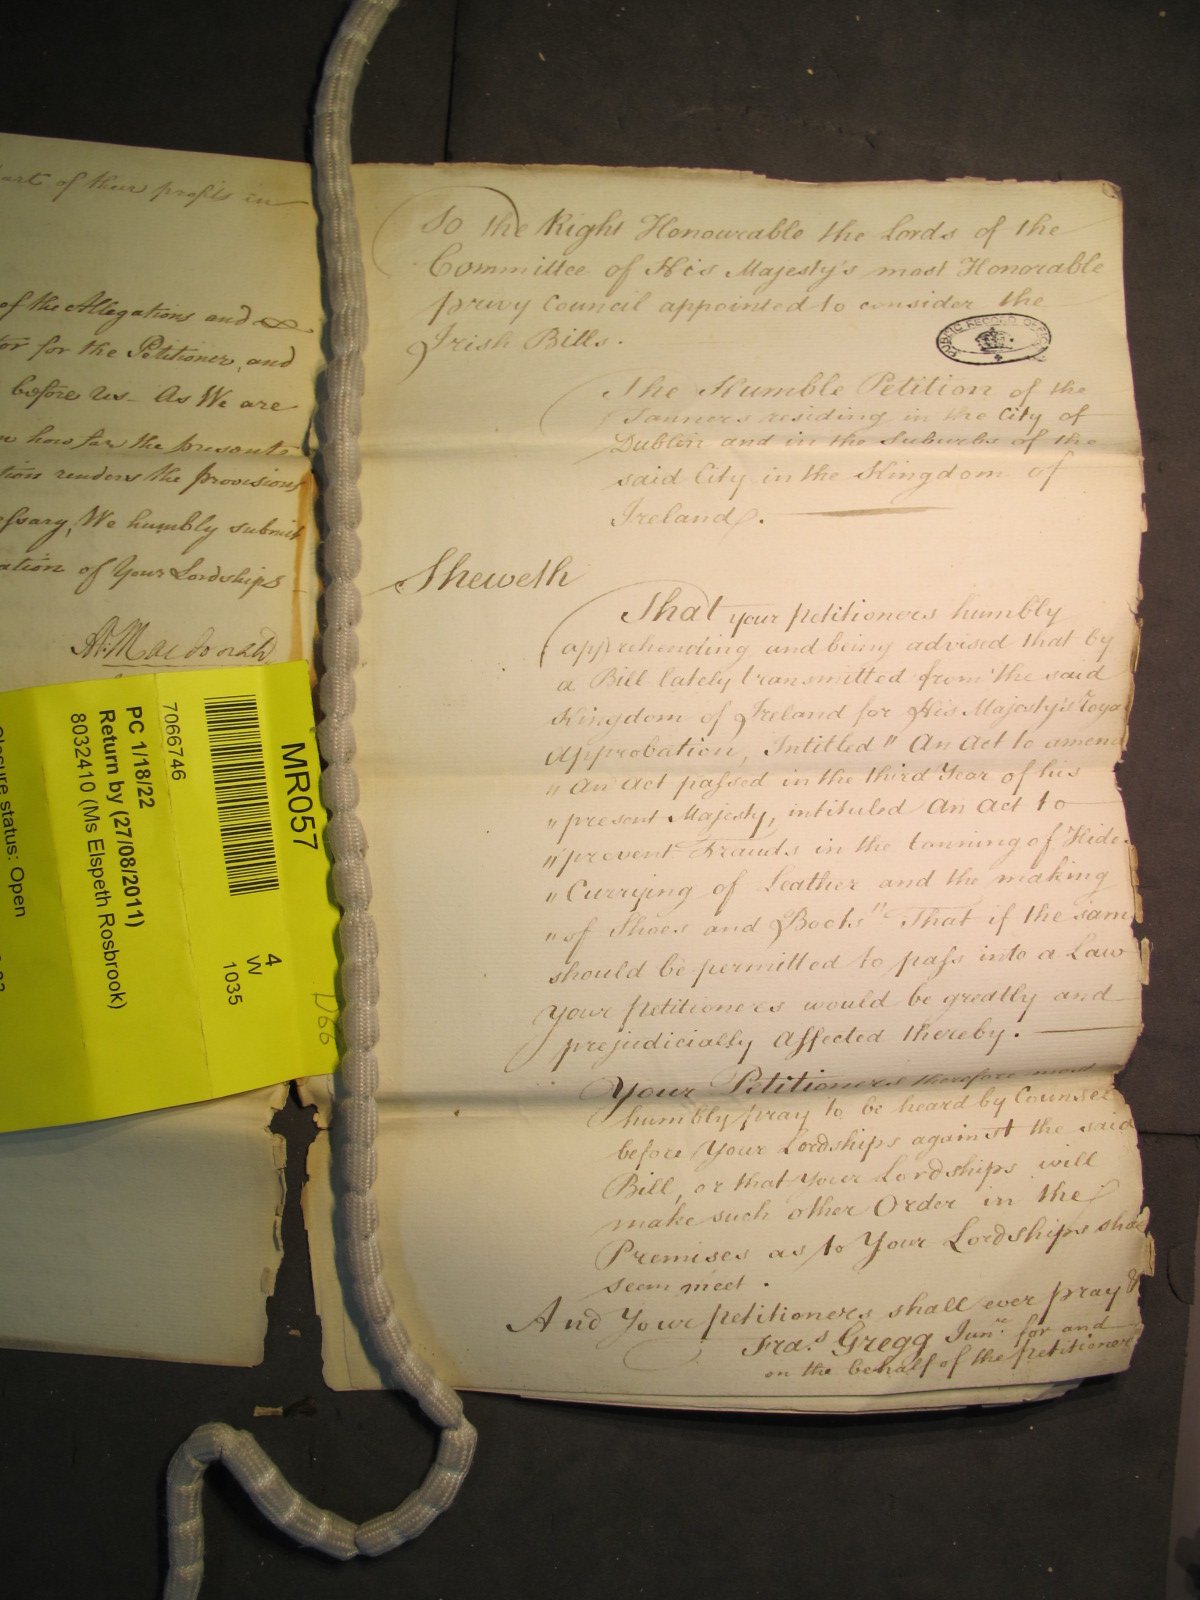 art of their profits in
of the Allegations and
tor for the Petitioner, and
before us. As We are
how far the presents
tion renders the provisions
essary, We humbly submit
ation of Your Lordships
Ar: Macdonald
MR057
7066746
PC 1/18/22
Return by (27/08/2011)
8032410 (Ms Elspeth Rosbrook)
4
W
1035
Closure status: Open
D66
To the Right Honourable the Lords of the
Committee of His Majesty's most Honorable
privy Council appointed to consider the
Irish Bills.
PUBLIC RECORD OFFICE
The Humble Petition of the
Tanners residing in the City of
Dublin and in the Suburbs of the
said City in the Kingdom of
Ireland.
Sheweth
That your petitioners humbly
apprehending and being advised that by
a Bill lately transmitted from the said
Kingdom of Ireland for His Majesty's Roya
Approbation, Intitled " An Act to amend
" An Act passed in the third Year of his
" present Majesty, intituled An Act to
" prevent Frauds in the tanning of Hide
" Currying of Leather and the making
" of Shoes and Boots" That if the sam
should be permitted to pass into a Law
your petitioners would be greatly and
prejudicially Affected thereby.
Your Petitioners therefore most
humbly pray to be heard by Counsel
before Your Lordships against the said
Bill, or that your Lordships will
make such other Order in the
Premises as to Your Lordships shal
seem meet.
And Your petitioners shall ever pray &
Fras. Gregg Junr. for and
on the behalf of the petitioner